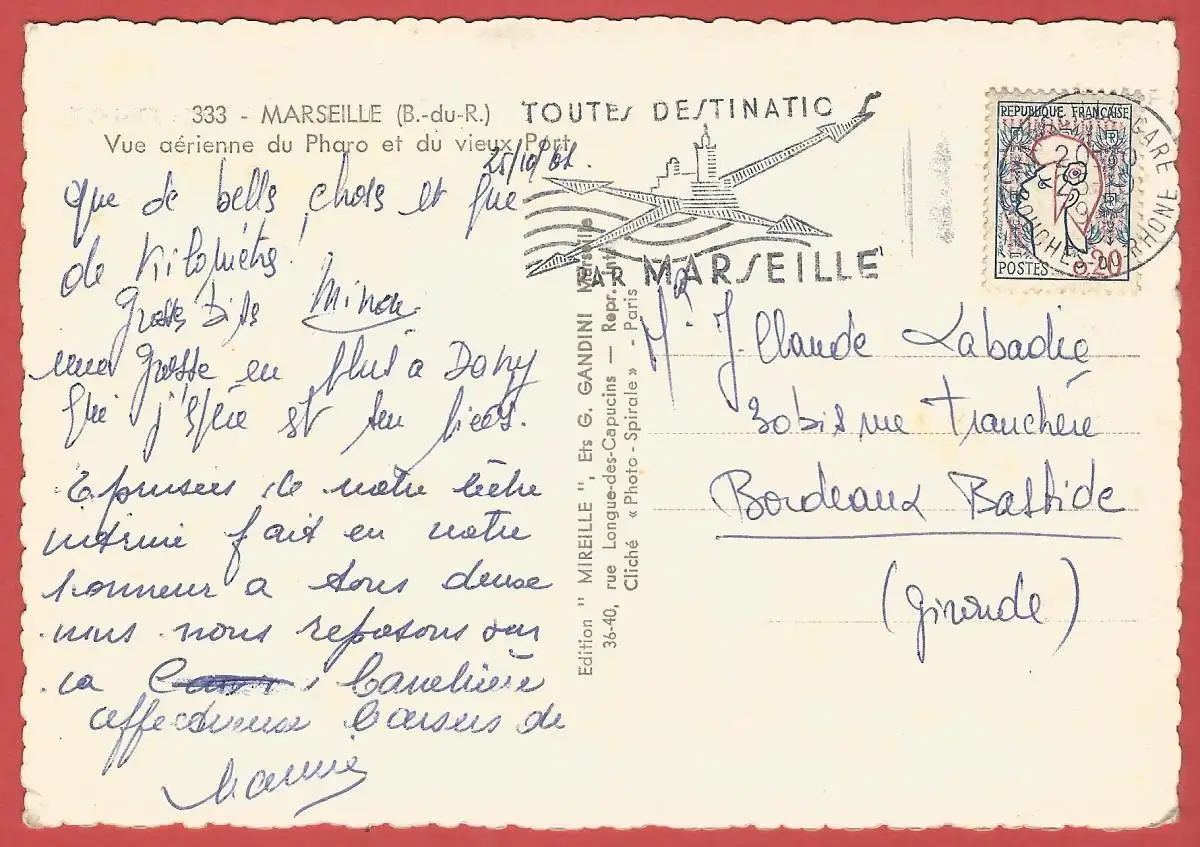 333 - MARSEILLE (B.-du-R.)
Vue aérienne du Pharo et du vieux Port
25/10/61.
que de bells choses et que
de Kilomètres!
Grosses Bises Minou
une grosse en plus à Dany
qui j'espère est bien
Epuisées de notre
intime fait en notre
honneur a tous deux
nous nous reposons sur
la Canebière
affectueux baisers de
Mamie
TOUTES DESTINATIO S
PAR MARSEILLE
REPUBLIQUE FRANÇAISE
POSTES
0,20
GARE
BOUCHES D RHONE
Edition " MIREILLE ", Ets G. GANDINI Marseille
36-40, rue Longue-des-Capucins — Repr. Int
Cliché « Photo - Spirale » - Paris
Mr J. Claude Labadie
30 bis rue Tranchère
Bordeaux Bastide
(Gironde)